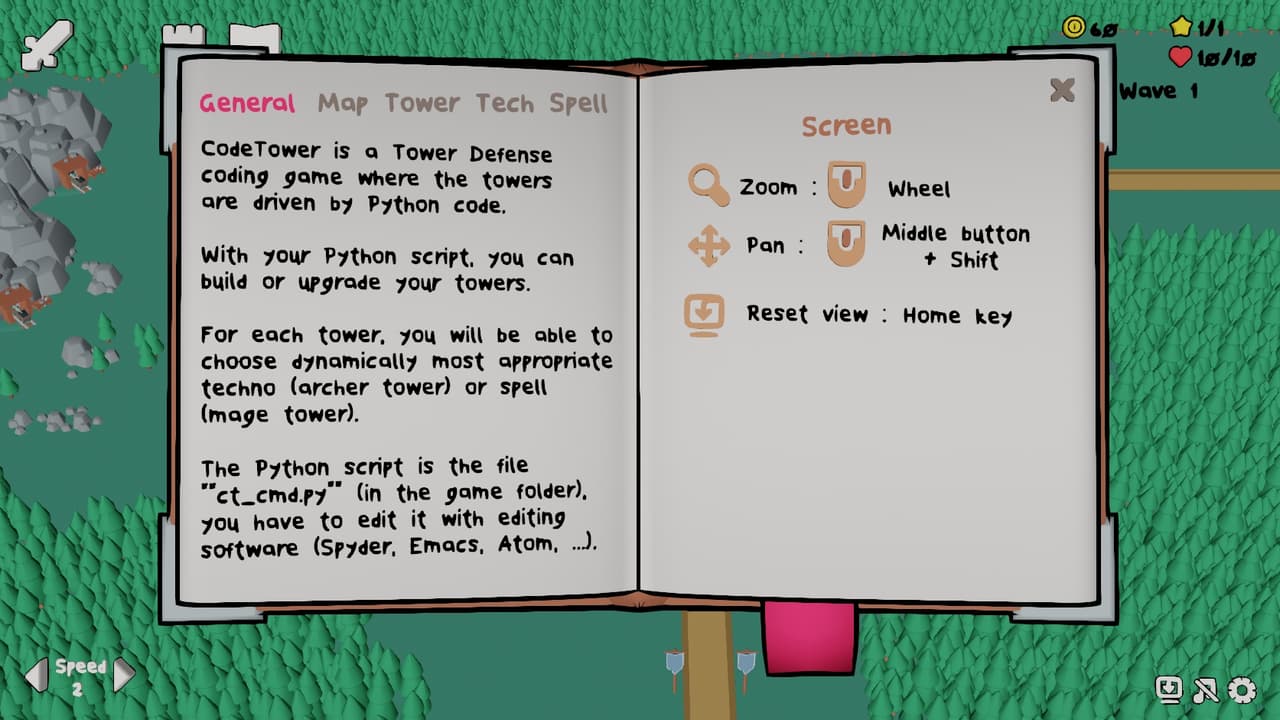 60
1/1
10/10
Wave 1
General Map Tower Tech Spell
CodeTower is a Tower Defense
coding game where the towers
are driven by Python code.
With your Python script, you can
build or upgrade your towers.
For each tower, you will be able to
choose dynamically most appropriate
techno (archer tower) or spell
(mage tower).
The Python script is the file
"ct_cmd.py" (in the game folder),
you have to edit it with editing
software (Spyder, Emacs, Atom, ...).
Screen
Zoom : Wheel
Pan : Middle button
+ Shift
Reset view : Home key
Speed
2